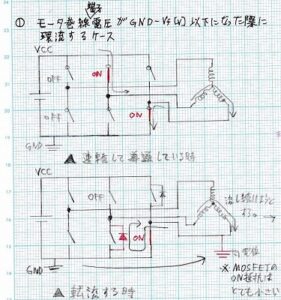 ① モータ巻線電圧がGND-VF[V]以下になった際に
還流するケース
VCC
OFF
ON
GND
▲ 連続して導通している時
VCC
OFF
流し続けようと
する。
ON
※MOSFETの
ON抵抗は
とても小さい
GND
▲ 転流する時